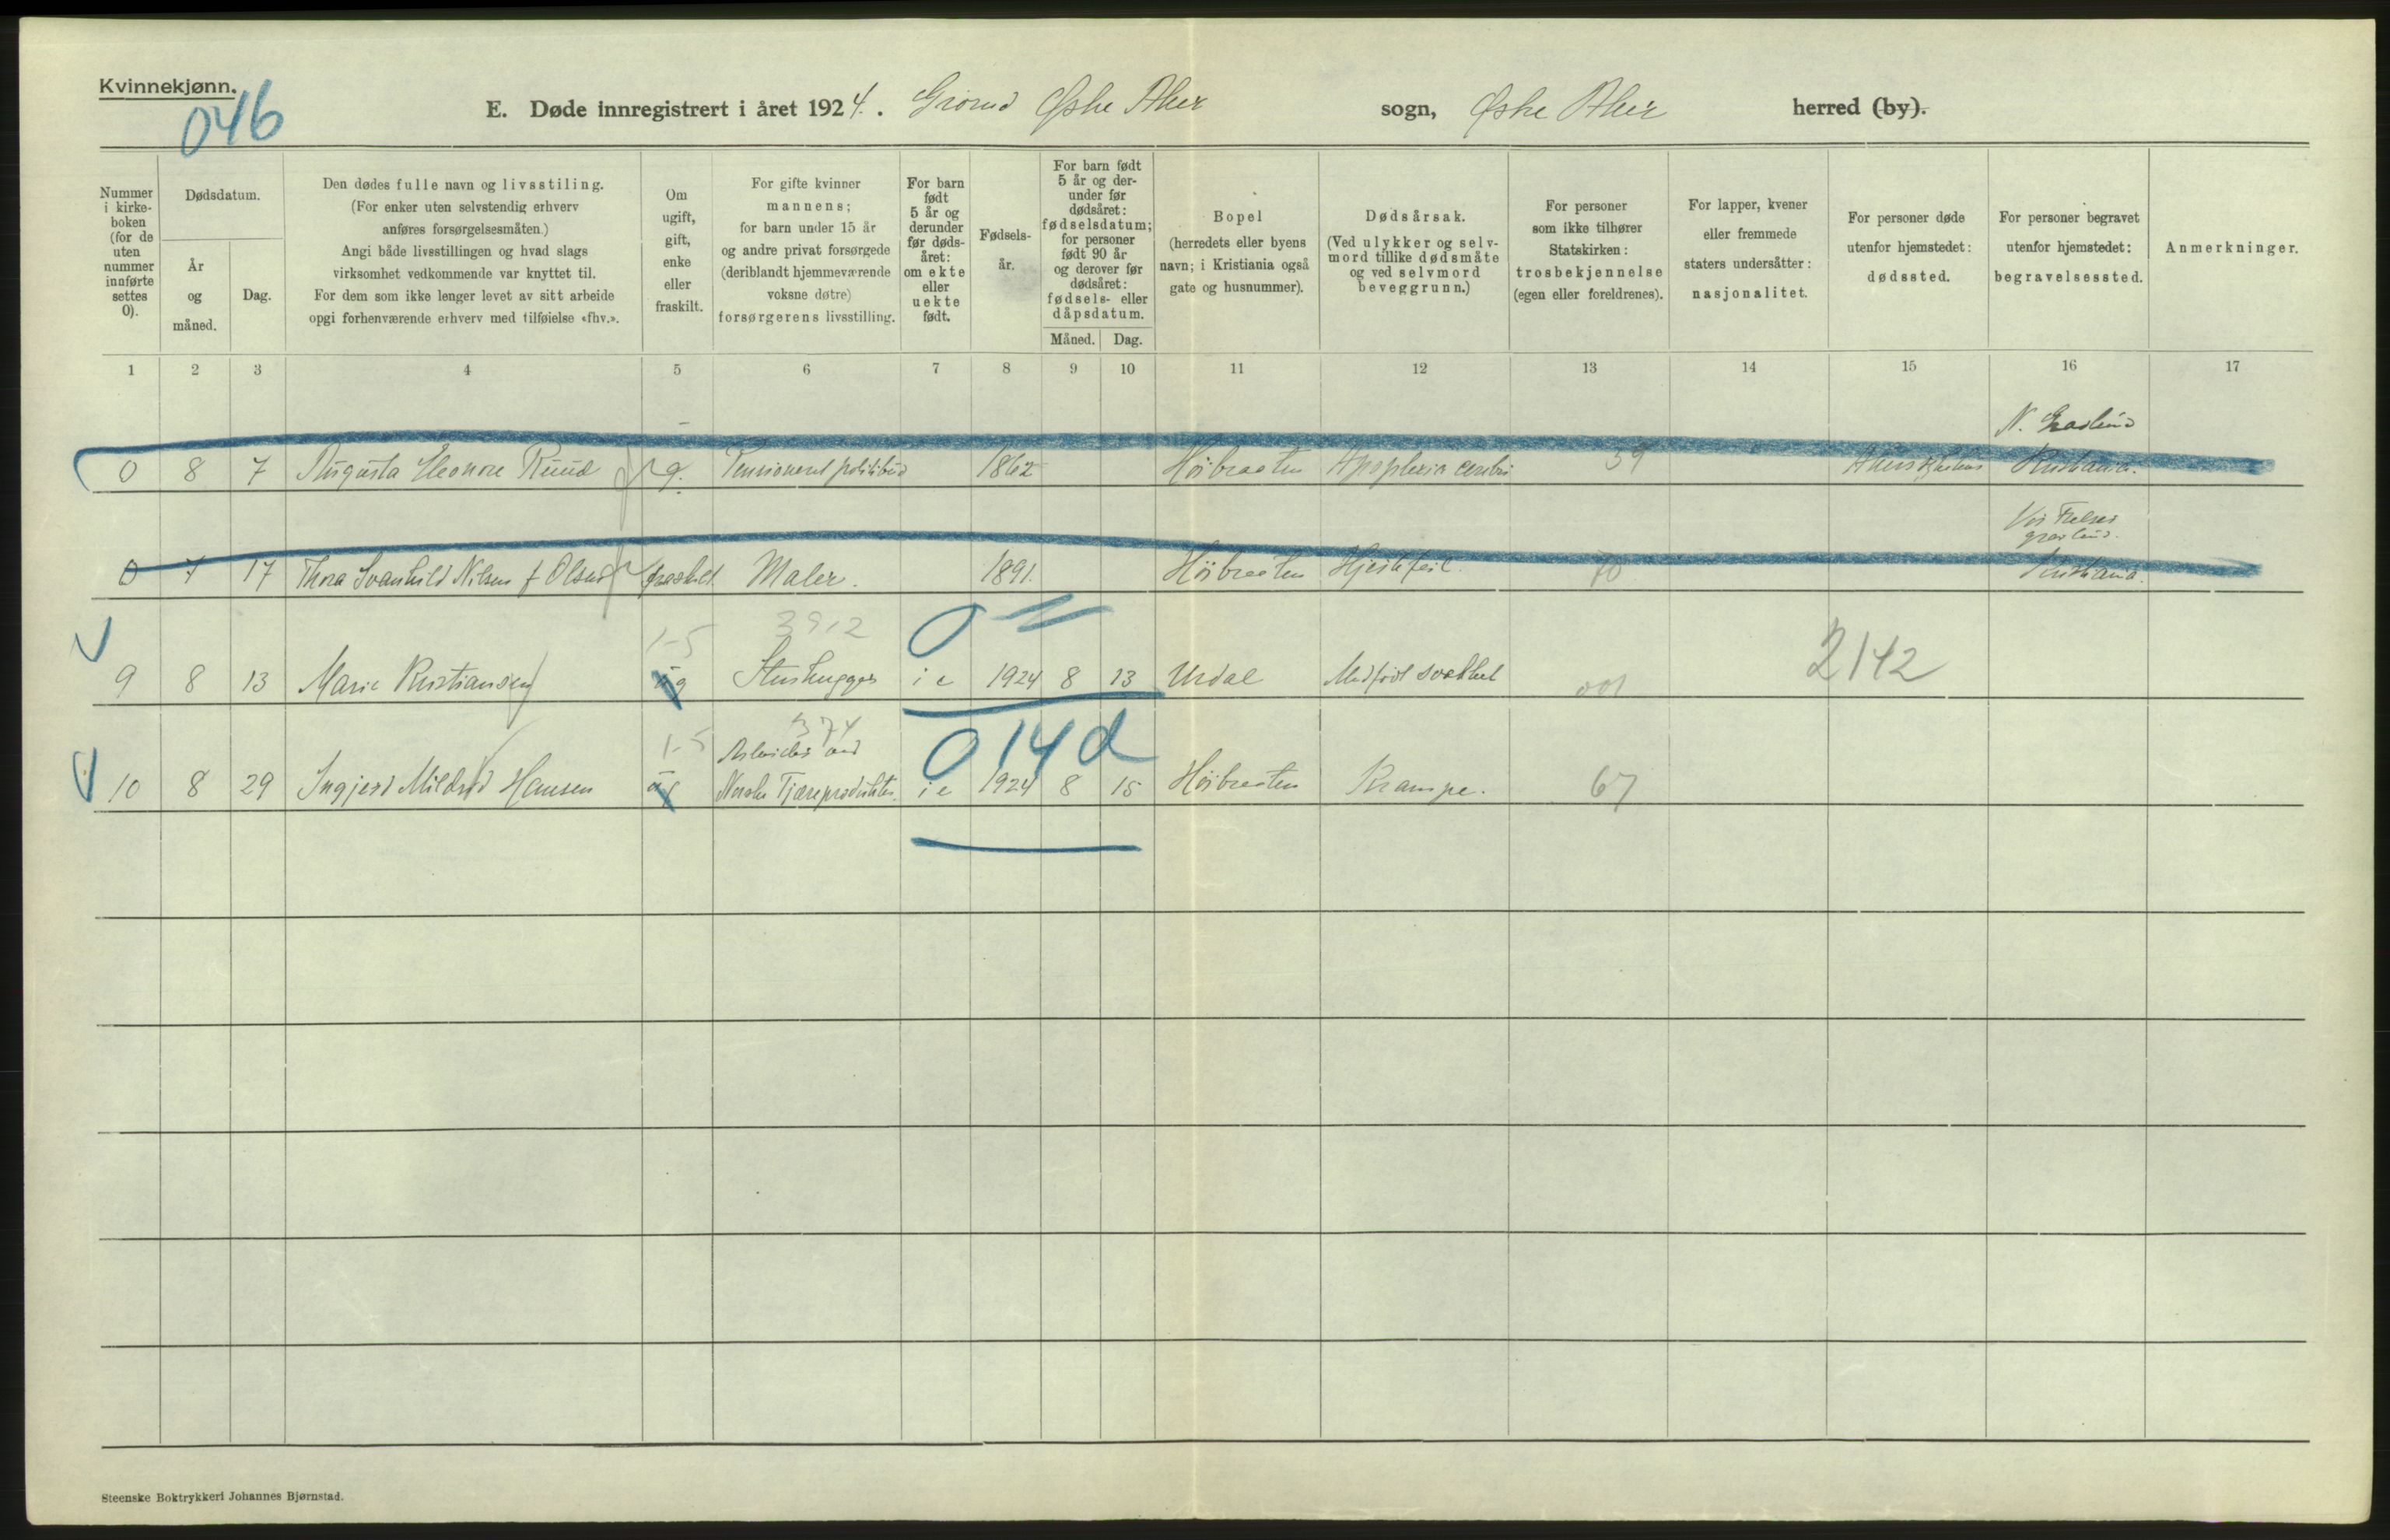 Kvinnekjønn.
046
E. Døde innregistrert i året 1924. Grorud Østre Aker sogn, Østre Aker herred (by).
Nummer i kirke-boken (for de uten nummer innførte settes 0).
Dødsdatum.
År og måned.
Dag.
Den dødes fulle navn og livsstiling.
(For enker uten selvstendig erhverv
anføres forsørgelsesmåten.)
Angi både livsstillingen og hvad slags
virksomhet vedkommende var knyttet til.
For dem som ikke lenger levet av sitt arbeide
opgi forhenværende erhverv med tilføielse «fhv.».
Om
ugift,
gift,
enke
eller
fraskilt.
For gifte kvinner
mannens;
for barn under 15 år
og andre privat forsørgede
(deriblandt hjemmeværende
voksne døtre)
forsørgerens livsstilling.
For barn
født
5 år og
derunder
før døds-
året:
om ekte
eller
uekte
født.
Fødsels-
år.
For barn født
5 år og der-
under før
dødsåret:
fødselsdatum;
for personer
født 90 år
og derover før
dødsåret:
fødsels- eller
dåpsdatum.
Måned. Dag.
Bopel
(herredets eller byens
navn; i Kristiania også
gate og husnummer).
Dødsårsak.
(Ved ulykker og selv-
mord tillike dødsmåte
og ved selvmord
beveggrunn.)
For personer
som ikke tilhører
Statskirken:
trosbekjennelse
(egen eller foreldrenes).
For lapper, kvener
eller fremmede
staters undersåtter:
nasjonalitet.
For personer døde
utenfor hjemstedet:
dødssted.
For personer begravet
utenfor hjemstedet:
begravelsessted.
Anmerkninger.
1 2 3 4 5 6 7 8 9 10 11 12 13 14 15 16 17
N. Gravlund
0 8 7 Augusta Eleonore Ruud g. Pensionert politibud 1862 Høibraaten Apoplexia cerebri 59 Kristiania.
Vor Frelsers
gravlund.
0 7 17 Thora Svanhild Nilsen f Olsen fraskilt Maler. 1891. Høibraaten Hjertefeil. 70 Kristiania.
1-5 3912
9 8 13 Marie Kristiansen ug Stenhugger i e 1924 8 13 Urdal Medfødt svakhet 001 2142
1-5 374 014d
Arbeider ved
10 8 29 Ingjerd Mildrid Hansen ug Norske Tjæreprodukter. i e 1924 8 15 Høibraaten Krampe. 67
Steenske Boktrykkeri Johannes Bjørnstad.